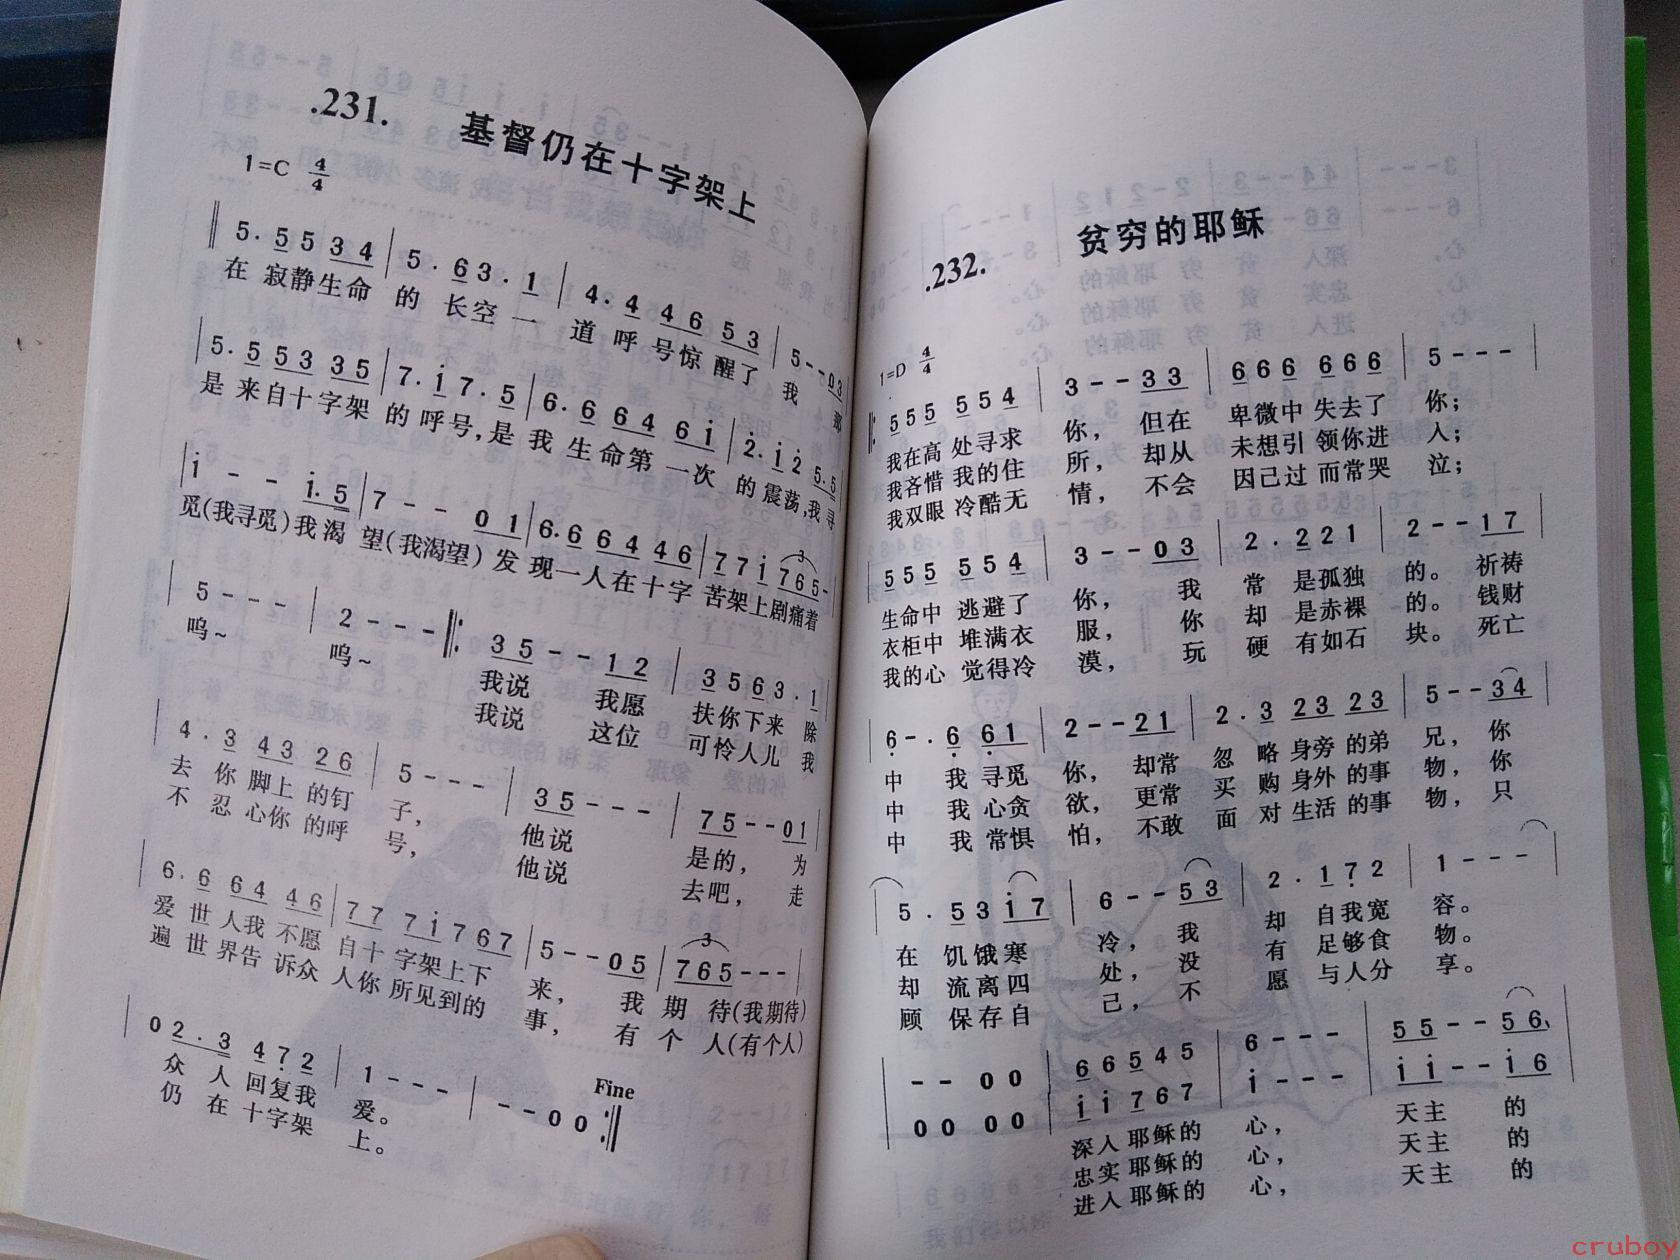 .231.
基督仍在十字架上
1=C 4/4
5. 5 5 3 4 | 5. 6 3. 1 | 4. 4 4 6 5 3 | 5 - - 0 3
在寂静生命 的长空一 道呼号惊醒了 我 那
5. 5 5 3 3 5 | 7. i 7. 5 | 6. 6 6 4 6 i | 2. i 2 5. 5
是来自十字架 的呼号,是 我生命第一次 的震荡,我寻
i - - i. 5 | 7 - - 0 1 | 6. 6 6 4 4 6 | 7 7 i 7 6 5 -
觅(我寻觅)我渴 望(我渴望) 发 现一人在十字 苦架上剧痛着
5 - - - | 2 - - - 3 5 - - 1 2 | 3 5 6 3. 1
呜~ 呜~ 我说 我愿 扶你下来 除
我说 这位 可怜人儿 我
4. 3 4 3 2 6 | 5 - - - | 3 5 - - - | 7 5 - - 0 1
去你脚上的钉 子, 他说 是的, 为
不忍心你的呼 号, 他说 去吧, 走
6. 6 6 4 4 6 | 7 7 7 i 7 6 7 | 5 - - 0 5 | 7 6 5 - - -
爱世人我不愿 自十字架上下 来, 我 期 待(我期待)
遍世界告诉众 人你所见到的 事, 有 个 人(有个人)
0 2. 3 4 7 2 | 1 - - - | - - 0 0 Fine
众人回复我 爱。
仍在十字架 上。
.232.
贫穷的耶稣
1=D 4/4
5 5 5 5 5 4 | 3 - - 3 3 | 6 6 6 6 6 6 | 5 - - -
我在高处寻求 你, 但在 卑微中失去了 你;
我吝惜我的住 所, 却从 未想引领你进 人;
我双眼冷酷无 情, 不会 因己过而常哭 泣;
5 5 5 5 5 4 | 3 - - 0 3 | 2. 2 2 1 | 2 - - 1 7
生命中逃避了 你, 我 常是孤独 的。 祈祷
衣柜中堆满衣 服, 你 却是赤裸 的。 钱财
我的心觉得冷 漠, 玩 硬有如石 块。 死亡
6 - . 6 6 1 | 2 - - 2 1 | 2. 3 2 3 2 3 | 5 - - 3 4
中 我寻觅 你, 却常 忽略身旁的弟 兄, 你
中 我心贪 欲, 更常 买购身外的事 物, 你
中 我常惧 怕, 不敢 面对生活的事 物, 只
5. 5 3 i 7 | 6 - - 5 3 | 2. 1 7 2 | 1 - - -
在饥饿寒 冷, 我 却自我宽 容。
却流离四 处, 没 有足够食 物。
顾保存自 己, 不 愿与人分 享。
- - 0 0 | 6 6 5 4 5 | 6 - - - | 5 5 - - 5 6
0 0 0 0 | i i 7 6 7 | i - - - | i i - - i 6
深人耶稣的 心, 天主 的
忠实耶稣的 心, 天主 的
进人耶稣的 心, 天主 的
cruboy